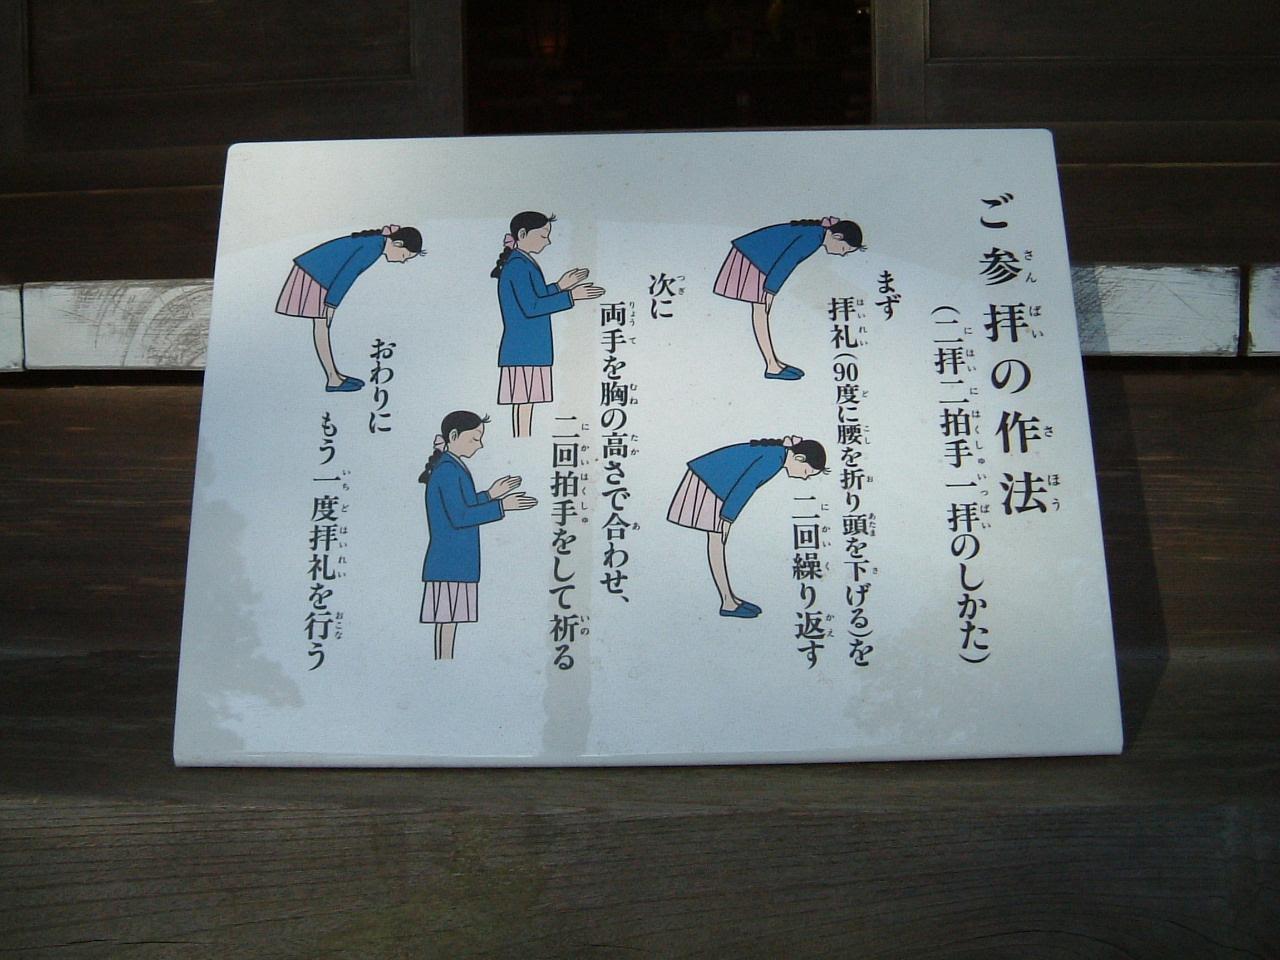 ご参拝の作法
(二拝二拍手一拝のしかた)
まず
拝礼(90度に腰を折り頭を下げる)を
二回繰り返す
次に
両手を胸の高さで合わせ、
二回拍手をして祈る
おわりに
もう一度拝礼を行う